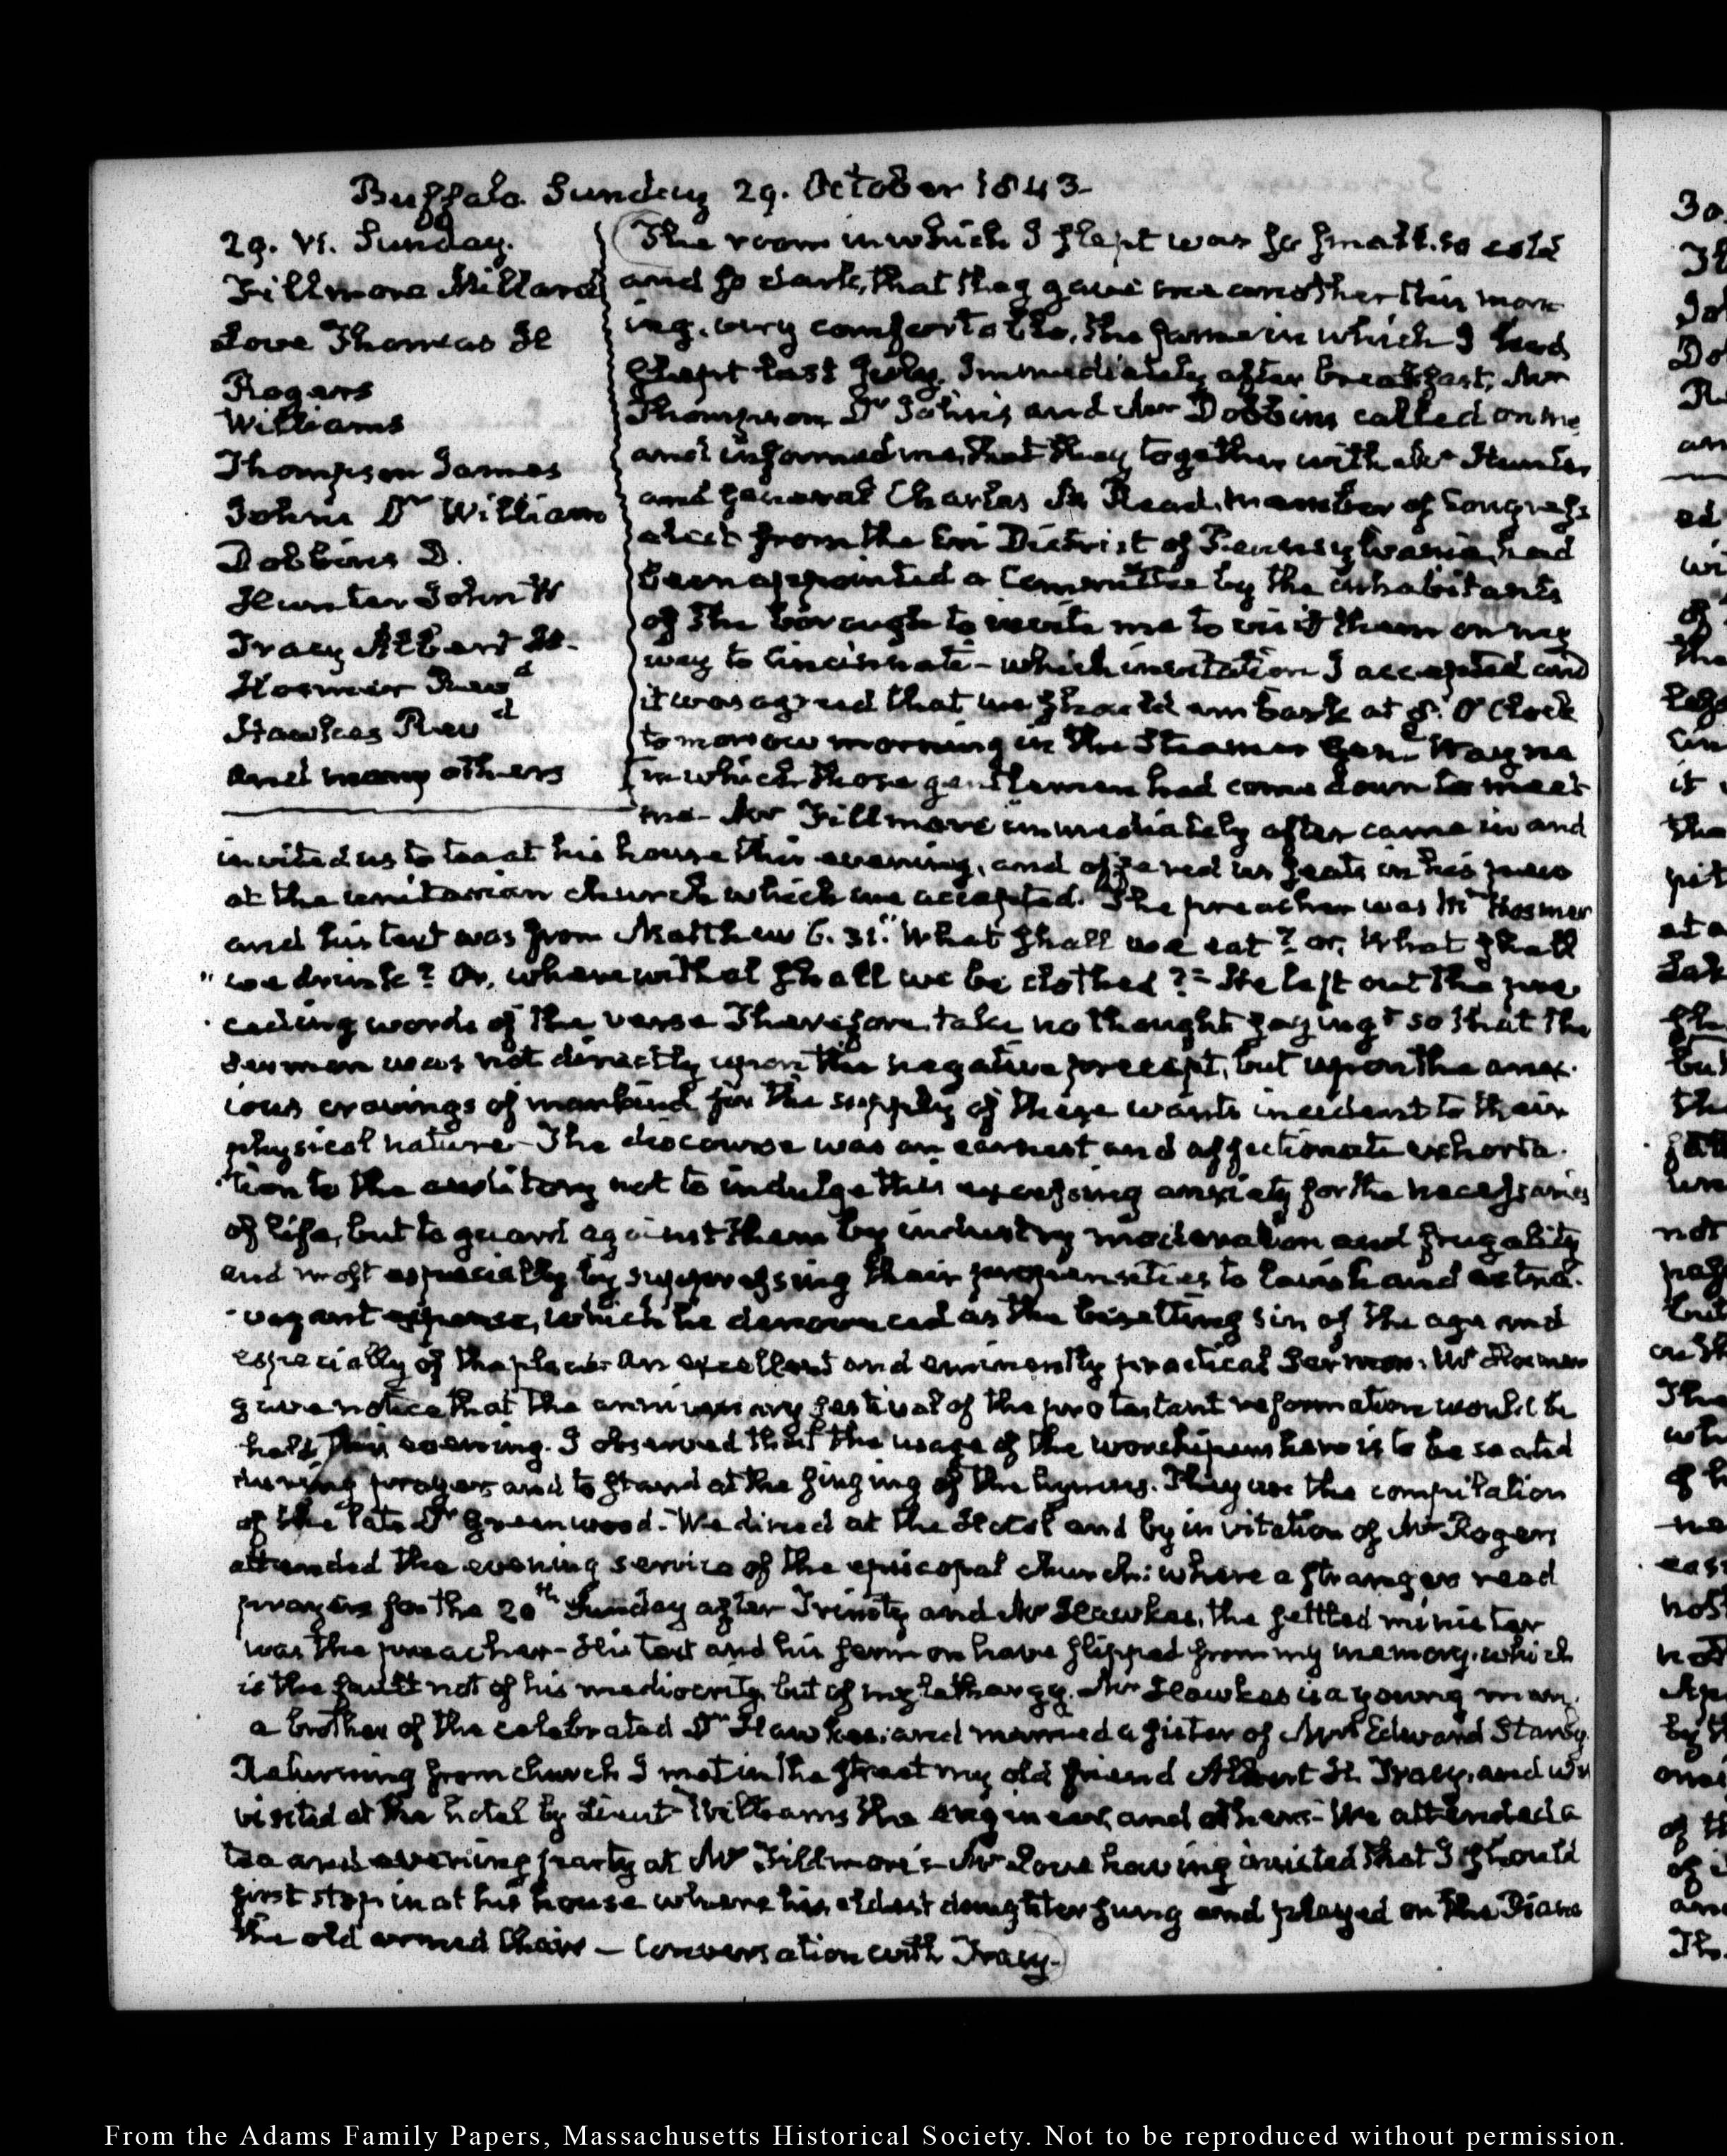 Buffalo Sunday 29. October 1843.
29. VI. Sunday.
Fillmore Millard
Love Thomas
Rogers
Williams
Thompson James
Johns Dr William
Dobbins D.
Hunter John W
Tracy Albert H.
Hosmer Revd
Hawkes Revd
and many others
The room in which I slept was so small, so cold
and so dark, that they gave me another this morn-
ing, very comfortable, the same in which I had
slept last July. Immediately after breakfast, Mr
Thompson Dr Johns and Mr Dobbins called on me
and informed me, that they together with Mr Hunter
and general Charles M. Read, member of Congress
elect from the Erie District of Pennsylvania, had
been appointed a Committee by the inhabitants
of the borough to invite me to visit them on my
way to Cincinnati - which invitation I accepted and
it was agreed that we should embark at 8. O'Clock
tomorrow morning in the Steamer Genl Wayne
in which those gentlemen had come down to meet
me - Mr Fillmore immediately after came in and
invited us to tea at his house this evening, and offered us seats in his pew
at the unitarian church which we accepted. The preacher was Mr Hosmer
and his text was from Matthew 6. 31. "What shall we eat? or, What shall
" we drink? Or, wherewithal shall we be clothed?" He left out the pre-
ceding words of the verse Therefore, take no thought saying so that the
sermon was not directly upon the negative precept, but upon the anx-
ious cravings of mankind for the supply of these wants incident to their
physical nature - The discourse was an earnest and affectionate exhorta-
tion to the auditory not to indulge this engrossing anxiety for the necessaries
of life, but to guard against them by industry moderation and frugality
and most especially by suppressing their propensities to lavish and extra-
vagant expense, which he denounced as the besetting sin of the age and
especially of the place - An excellent and eminently practical Sermon. Mr Hosmer
gave notice that the anniversary festival of the protestant reformation would be
held this evening. I observed that the usage of the worshipers here is to be seated
during prayers and to stand at the singing of the hymns. They use the compilation
of the late Dr Greenwood. We dined at the Hotel and by invitation of Mr Rogers
attended the evening service of the episcopal church: where a stranger read
prayers for the 20th Sunday after Trinity and Mr Hawkes, the settled minister
was the preacher - His text and his sermon have slipped from my memory, which
is the fault not of his mediocrity, but of my lethargy. Mr Hawkes is a young man,
a brother of the celebrated Dr Hawkes: and married a sister of Mrs Edward Stanly
Returning from church I met in the street my old friend Albert H. Tracy, and was
visited at the hotel by Lieut Williams the engineer, and others - We attended a
tea and evening party at Mr Fillmore's - Mr Love having insisted that I should
first stop in at his house where his eldest daughter sung and played on the Piano
the old armed Chair - Conversation with Tracy.
From the Adams Family Papers, Massachusetts Historical Society. Not to be reproduced without permission.